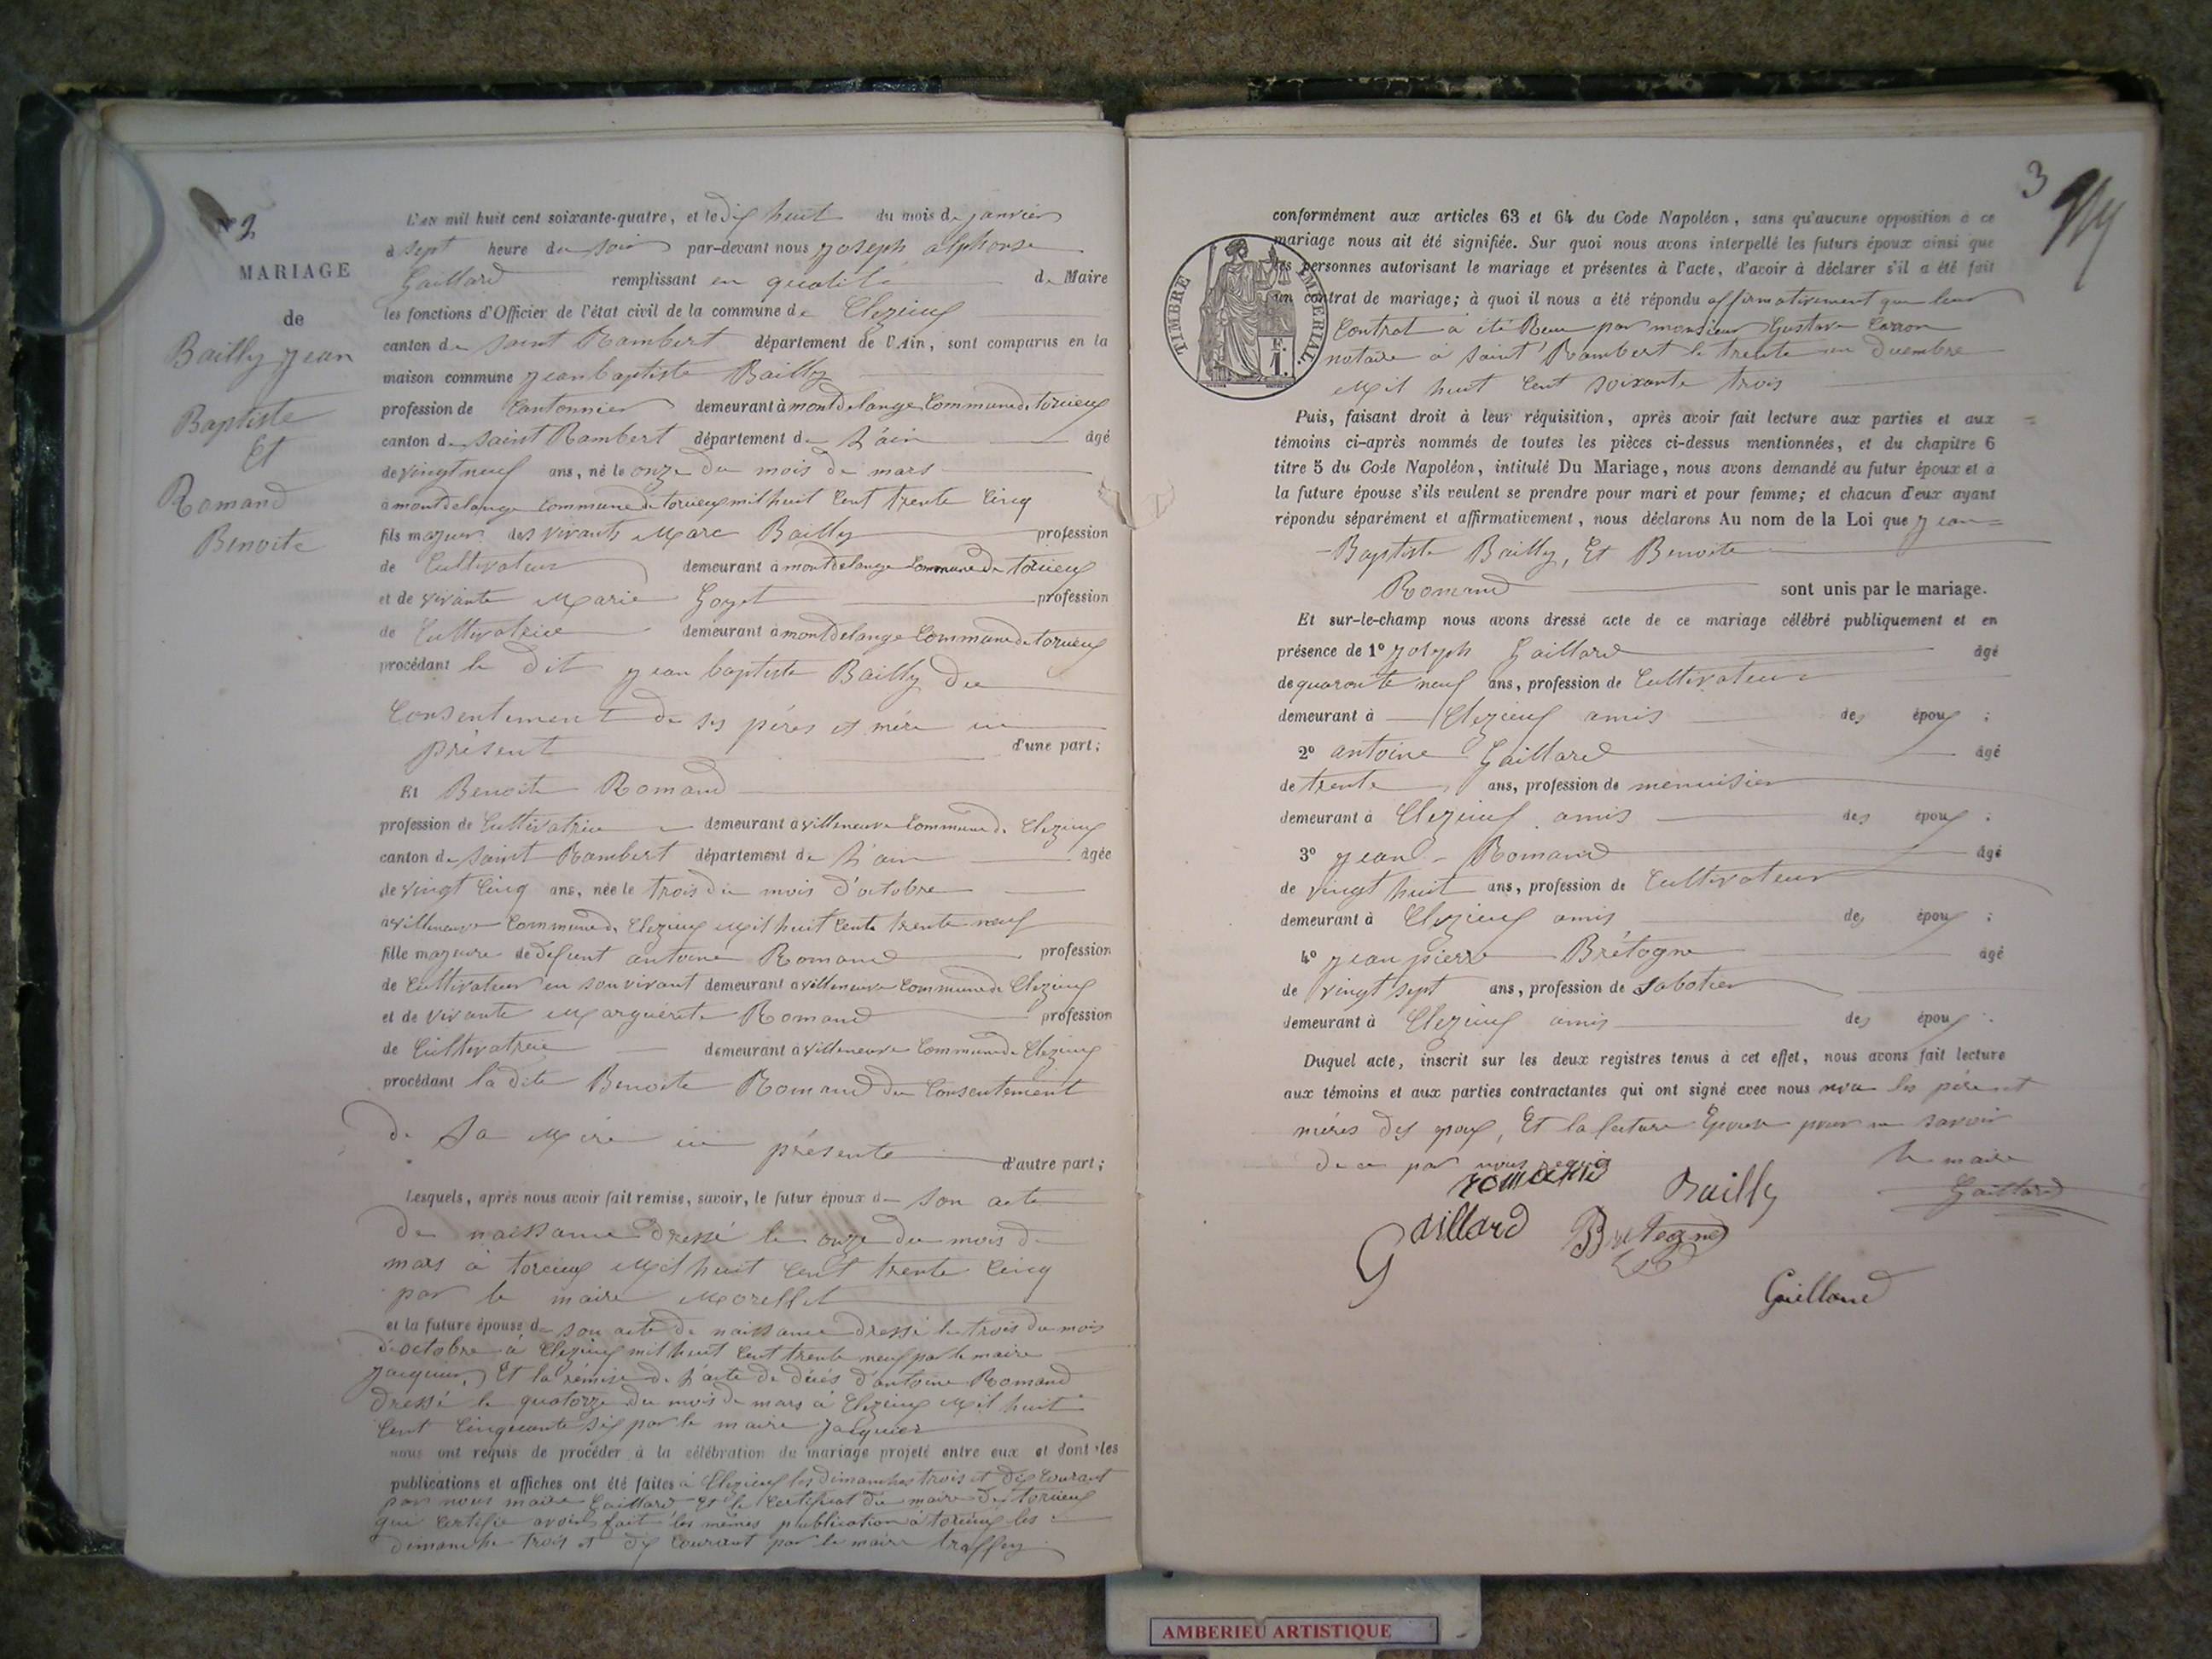 N° 2
MARIAGE
de
Bailly Jean
Baptiste
Et
Romand
Benoite
L'an mil huit cent soixante-quatre, et le dix huit du mois de janvier
à sept heure du soir par-devant nous joseph alphonse
Gaillard remplissant en qualité de Maire
les fonctions d'Officier de l'état civil de la commune de Clezieux
canton de saint Rambert département de l'Ain, sont comparus en la
maison commune jean baptiste Bailly
profession de Cantonnier demeurant à montdelange Commune de torcieux
canton de saint Rambert département de L'ain âgé
de vingt neuf ans, né le onze du mois de mars
à montdelange commune de torcieux mil huit Cent trente Cinq
fils majeur des vivants Marc Bailly profession
de Cultivateur demeurant à montdelange Commune de torcieux
et de vivante Marie Goyet profession
de Cultivatrice demeurant à montdelange Commune de torcieux
procédant le dit jean baptiste Bailly du
Consentement de ses péres et mére ici
présent d'une part;
Et Benoite Romand
profession de Cultivatrice demeurant à villeneuve Commune de Clezieux
canton de saint Rambert département de L'ain âgée
de vingt Cinq ans, née le trois du mois d'octobre
à villeneuve Commune de Clezieux Mil huit Cents trente neuf
fille majeure de défunt antoine Romand profession
de Cultivateur en son vivant demeurant à villeneuve Commune de Clezieux
et de vivante Marguérite Romand profession
de Cultivatrice demeurant à villeneuve Commune de Clezieux
procédant la dite Benoite Romand du Consentement
de sa Mére ici présente d'autre part;
Lesquels, après nous avoir fait remise, savoir, le futur époux de son acte
de naissance dressé le onze du mois de
mars à torcieux Mil huit Cent trente Cinq
par le maire Morellet
et la future épouse de son acte de naissance dressé le trois du mois
d'octobre à Clezieux mil huit Cent trente neuf par le maire
Jacquier, Et la rémise de L'acte de décés d'antoine Romand
dressé le quatorze du mois de mars à Clezieux Mil huit
Cent Cinquante six par le maire Jacquier
nous ont requis de procéder à la célébration du mariage projeté entre eux et dont les
publications et affiches ont été faites à Clezieux les dimanches trois et dix courant
par nous maire Gaillard Et le Certificat du maire de torcieux
qui Certifie avoir fait les mêmes publication à torcieux les
dimanche trois et dix Courant par le maire
3
TIMBRE IMPERIAL.
F.
1.
conformément aux articles 63 et 64 du Code Napoléon, sans qu'aucune opposition à ce
mariage nous ait été signifiée. Sur quoi nous avons interpellé les futurs époux ainsi que
les personnes autorisant le mariage et présentes à l'acte, d'avoir à déclarer s'il a été fait
un contrat de mariage; à quoi il nous a été répondu affirmativement que leur
Contrat à été Reçu par monsieur Gustave
notaire à saint Rambert le trente un décembre
Mil huit Cent soixante trois
Puis, faisant droit à leur réquisition, après avoir fait lecture aux parties et aux
témoins ci-après nommés de toutes les pièces ci-dessus mentionnées, et du chapitre 6
titre 5 du Code Napoléon, intitulé Du Mariage, nous avons demandé au futur époux et à
la future épouse s'ils veulent se prendre pour mari et pour femme; et chacun d'eux ayant
répondu séparément et affirmativement, nous déclarons Au nom de la Loi que jean=
Baptiste Bailly, Et Benoite
Romand sont unis par le mariage.
Et sur-le-champ nous avons dressé acte de ce mariage célébré publiquement et en
présence de 1° joseph Gaillard âgé
de quarante neuf ans, profession de Cultivateur
demeurant à Clezieux amis des époux ;
2° antoine Gaillard âgé
de trente ans, profession de menuisier
demeurant à Clezieux amis des époux ;
3° jean Romand âgé
de vingt huit ans, profession de Cultivateur
demeurant à Clezieux amis des époux ;
4° jean pierre Brétogne âgé
de vingt sept ans, profession de sabotier
demeurant à Clezieux amis des époux
Duquel acte, inscrit sur les deux registres tenus à cet effet, nous avons fait lecture
aux témoins et aux parties contractantes qui ont signé avec nous les pére et
méres des époux, Et la future Epouse pour ne savoir
de ce par nous requis Le maire
romand Bailly Gaillard
Gaillard Bretogne
Gaillard
AMBERIEU ARTISTIQUE